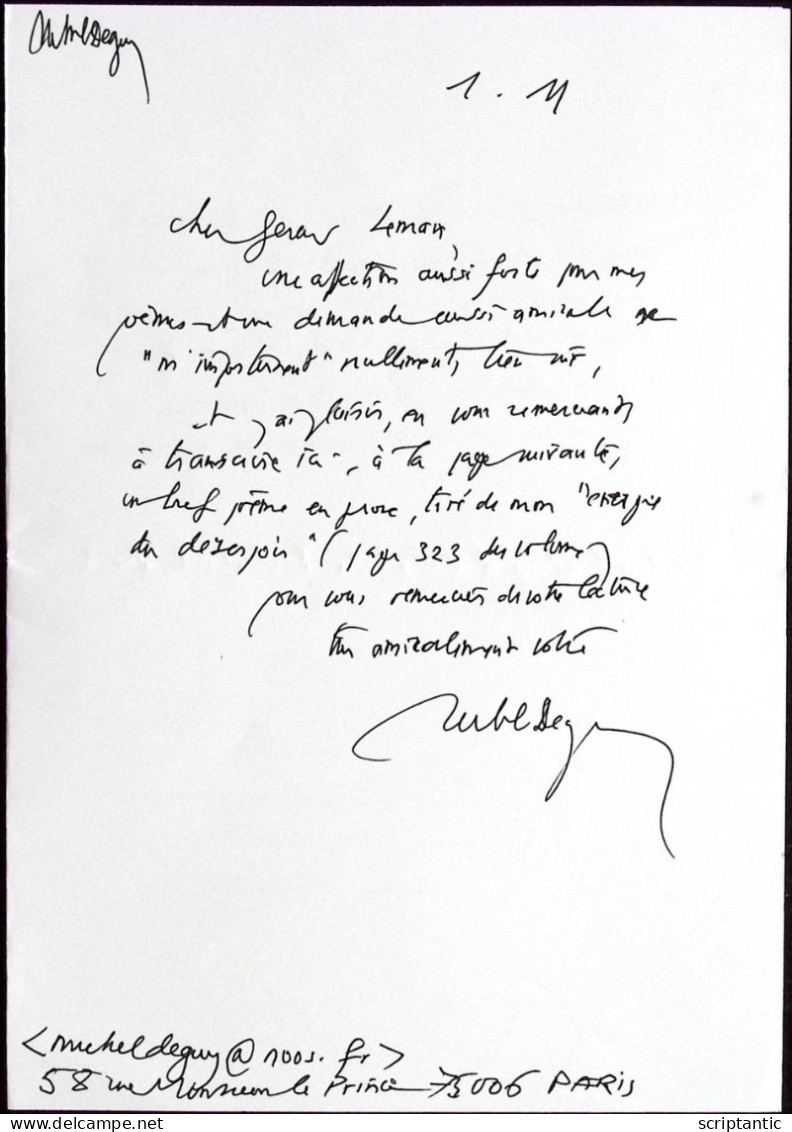 Michel Deguy
1 . 11
cher Gérard Lemaire,
une affection aussi forte pour mes
poèmes et une demande aussi amicale ne
"m'importunent" nullement, bien sûr,
et j'ai plaisir, en vous remerciant,
à transcrire ici, à la page suivante,
un bref poème en prose, tiré de mon "énergie
du désespoir" (page 323 du volume)
pour vous remercier de votre lecture
très amicalement vôtre
Michel Deguy
<micheldeguy@noos.fr>
58 rue Monsieur le Prince 75006 PARIS
scriptantic